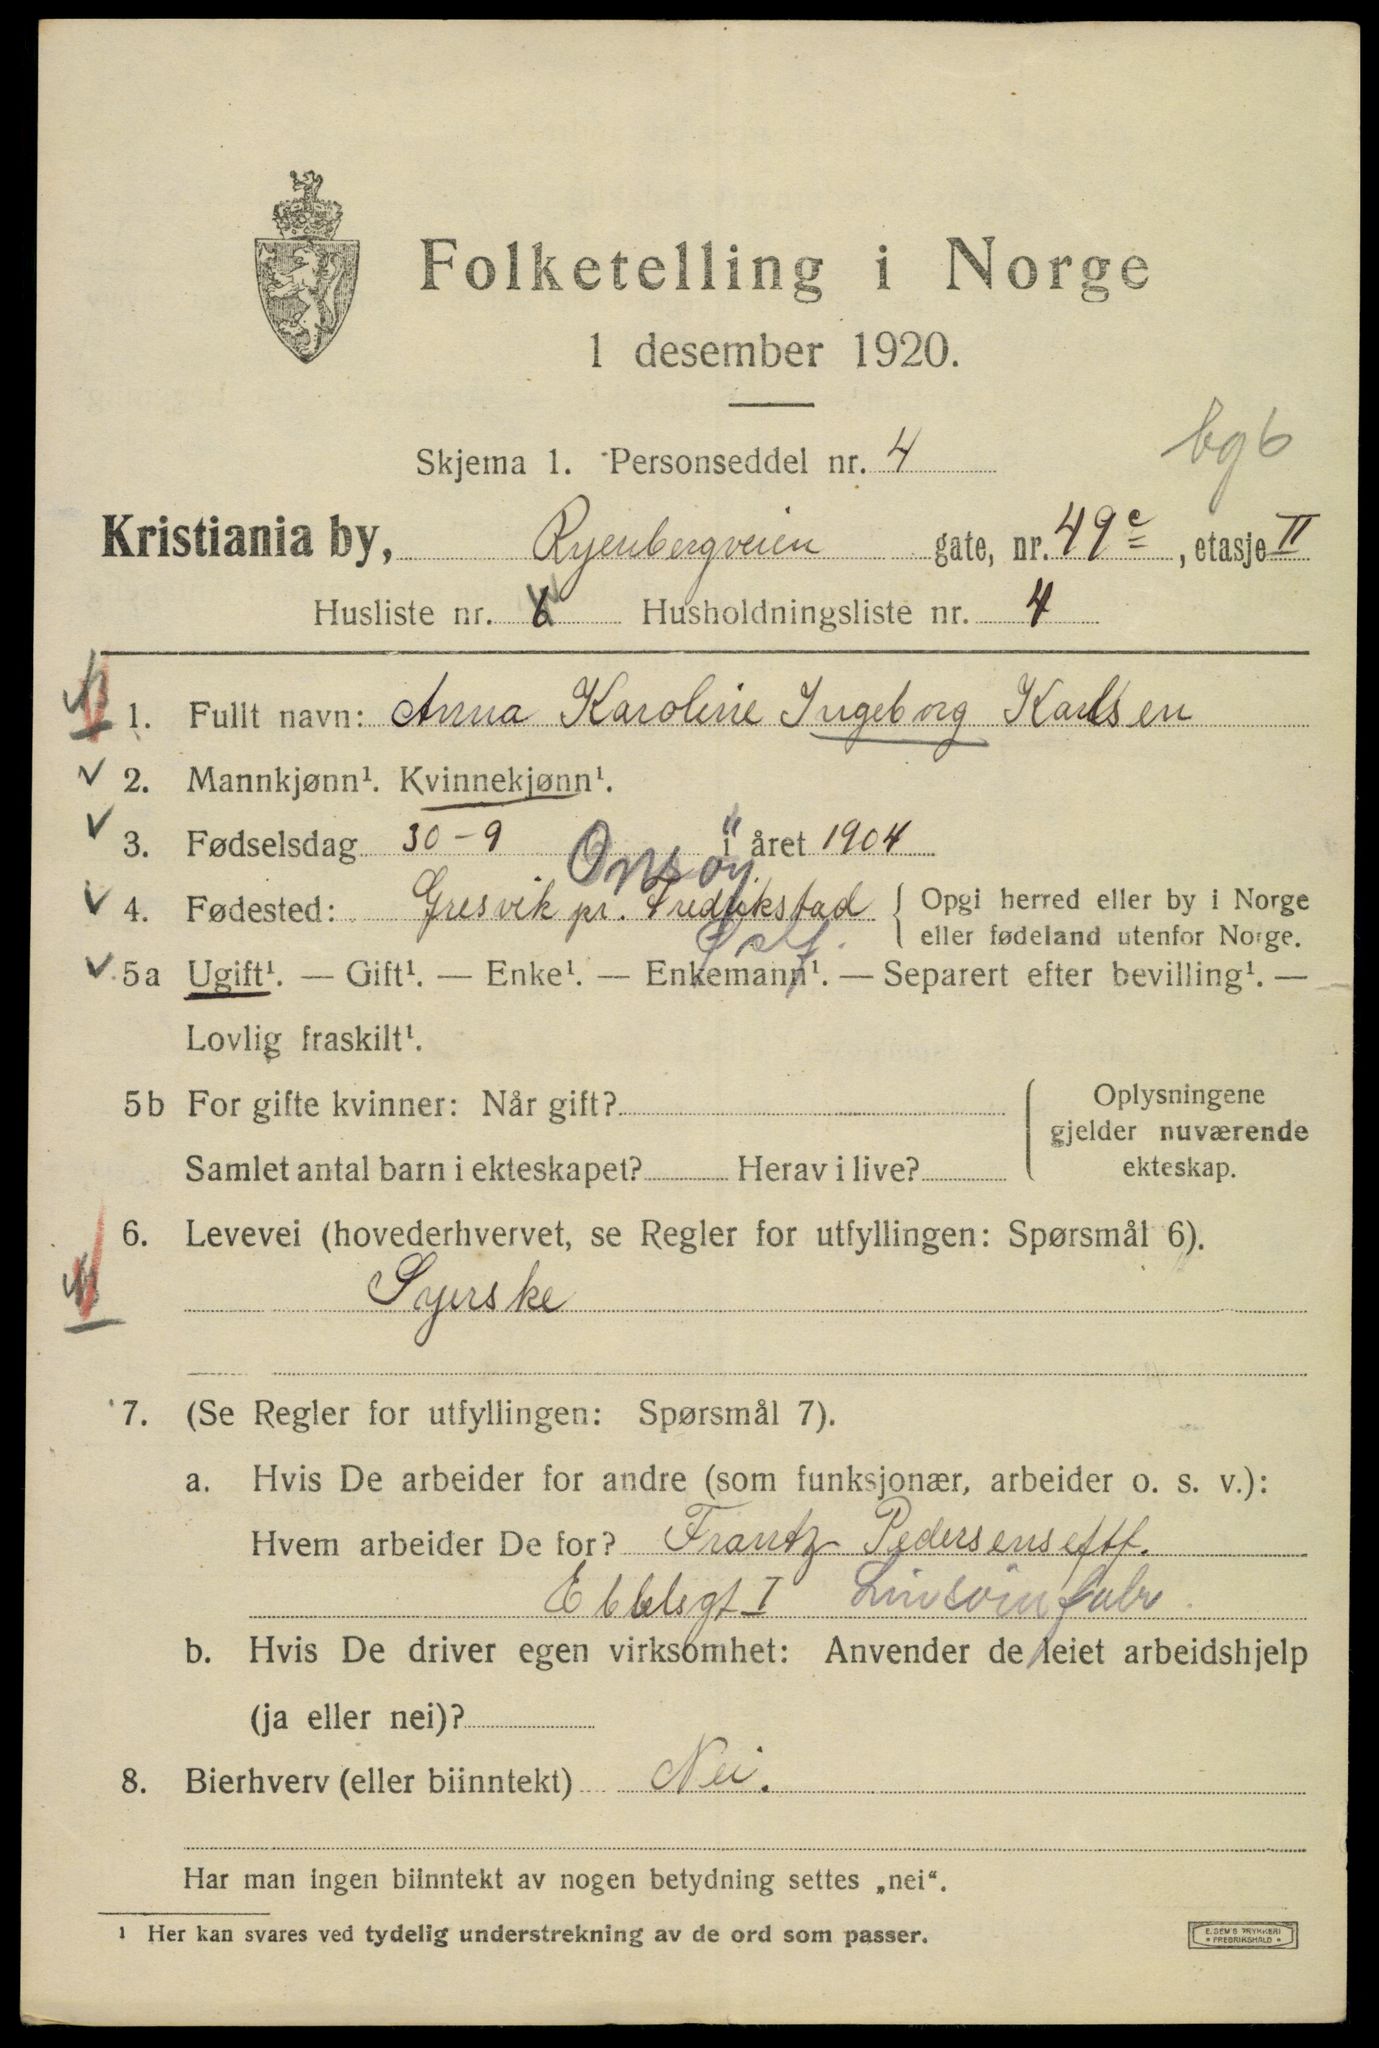 Folketelling i Norge
1 desember 1920.
Skjema 1. Personseddel nr. 4
bg6
Kristiania by, Ryenbergveien gate, nr. 49c, etasje II
Husliste nr. 6 Husholdningsliste nr. 4
1. Fullt navn: Anna Karoline Ingeborg Karlsen
2. Mannkjønn¹. Kvinnekjønn¹.
3. Fødselsdag 30-9 i året 1904
Onsøy.
4. Fødested: Gresvik pr. Fredrikstad { Opgi herred eller by i Norge
eller fødeland utenfor Norge.
Østf.
5a Ugift¹. — Gift¹. — Enke¹. — Enkemann¹. — Separert efter bevilling¹. —
Lovlig fraskilt¹.
5b For gifte kvinner: Når gift?
Samlet antal barn i ekteskapet? Herav i live?
{ Oplysningene
gjelder nuværende
ekteskap.
6. Levevei (hovederhvervet, se Regler for utfyllingen: Spørsmål 6).
Syerske
7. (Se Regler for utfyllingen: Spørsmål 7).
a. Hvis De arbeider for andre (som funksjonær, arbeider o. s. v.):
Hvem arbeider De for? Frantz Pedersens eftf.
Ebbelsgt I
b. Hvis De driver egen virksomhet: Anvender de leiet arbeidshjelp
(ja eller nei)?
8. Bierhverv (eller biinntekt) Nei.
Har man ingen biinntekt av nogen betydning settes „nei“.
¹ Her kan svares ved tydelig understrekning av de ord som passer.
E. SEM'S TRYKKERI
* FREDRIKSHALD *